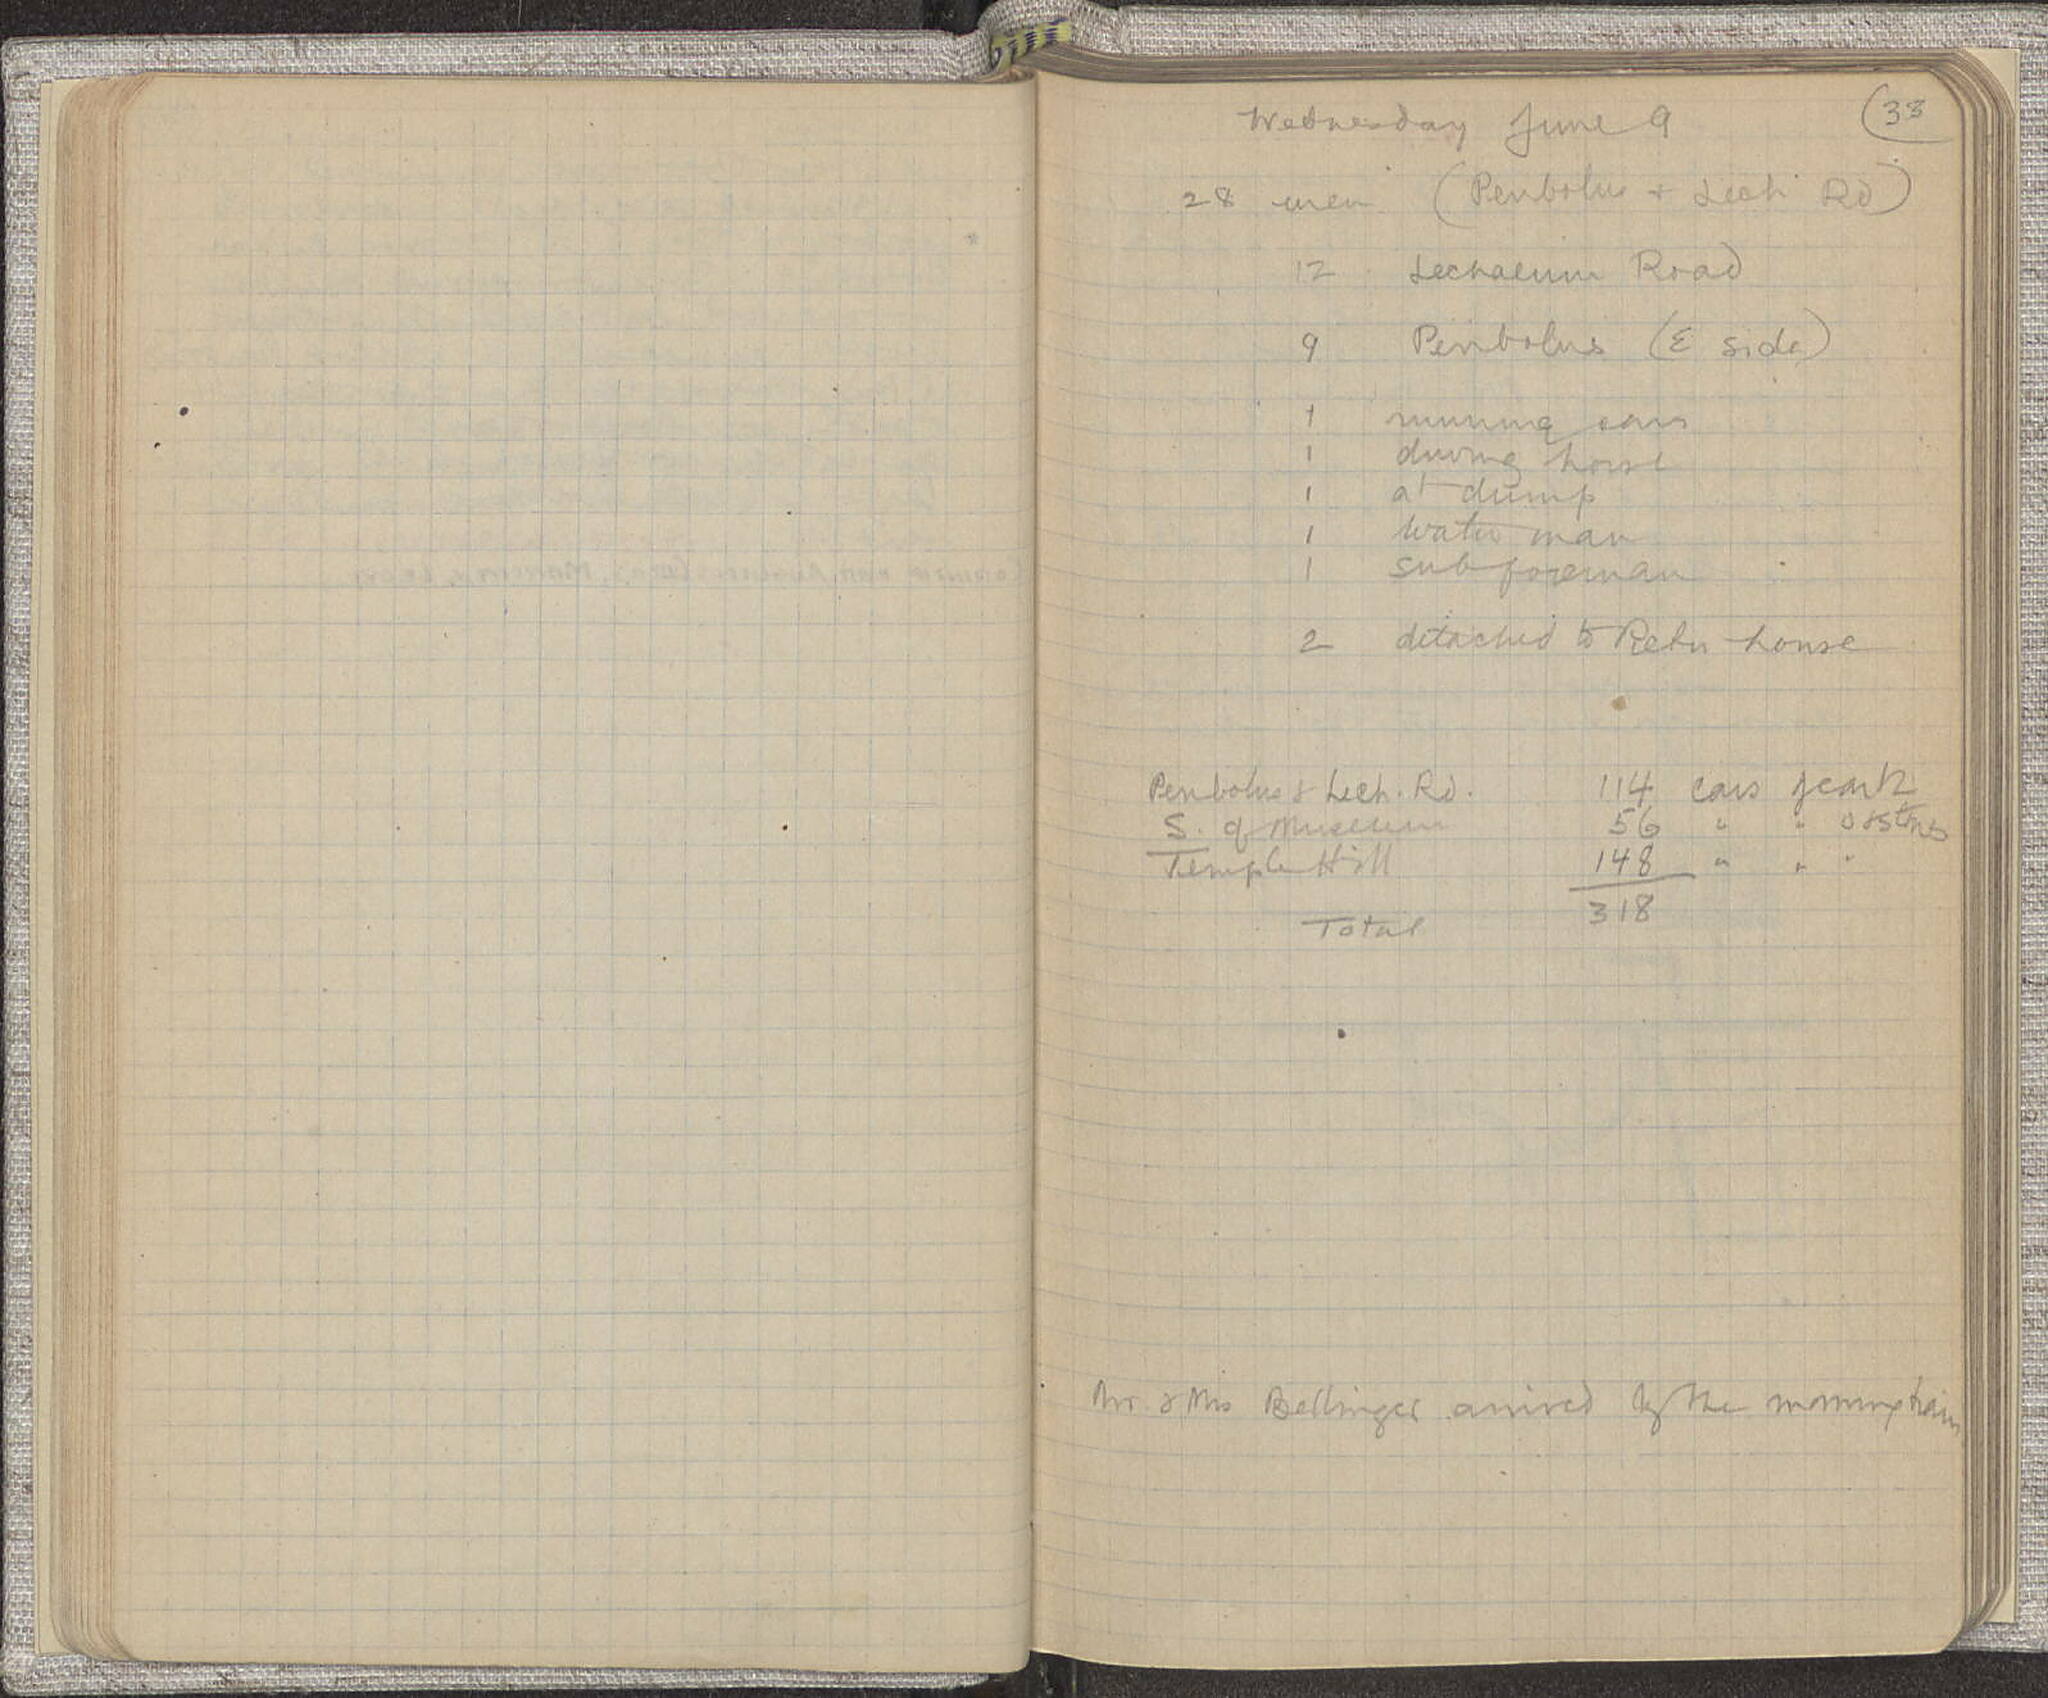 33
Wednesday June 9
28 men (Peribolus & Lech Rd)
12 Lechaeum Road
9 Peribolus (E side)
1 running cars
1 driving horse
1 at dump
1 water man
1 sub foreman
2 detached to Refu house
Peribolus & Lech. Rd. 114 cars of earth
S. of Museum 56 " " " & stones
Temple Hill 148 " " "
318
Total
Mr & Mrs Bellinger arrived by the morning train